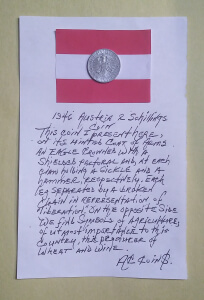 1946 Austria 2 Schillings
Coin
This coin I present here,
it's minted coat of arms
an eagle crowned with a
shielded pectoral and, at each
holding a sickle and a
hammer, respectively. Each
leg separated by a broken
chain in representation of
"liberation". On the opposite side
we find symbols of agriculture,
of utmost importance to this
country, the producer of
wheat and wine.